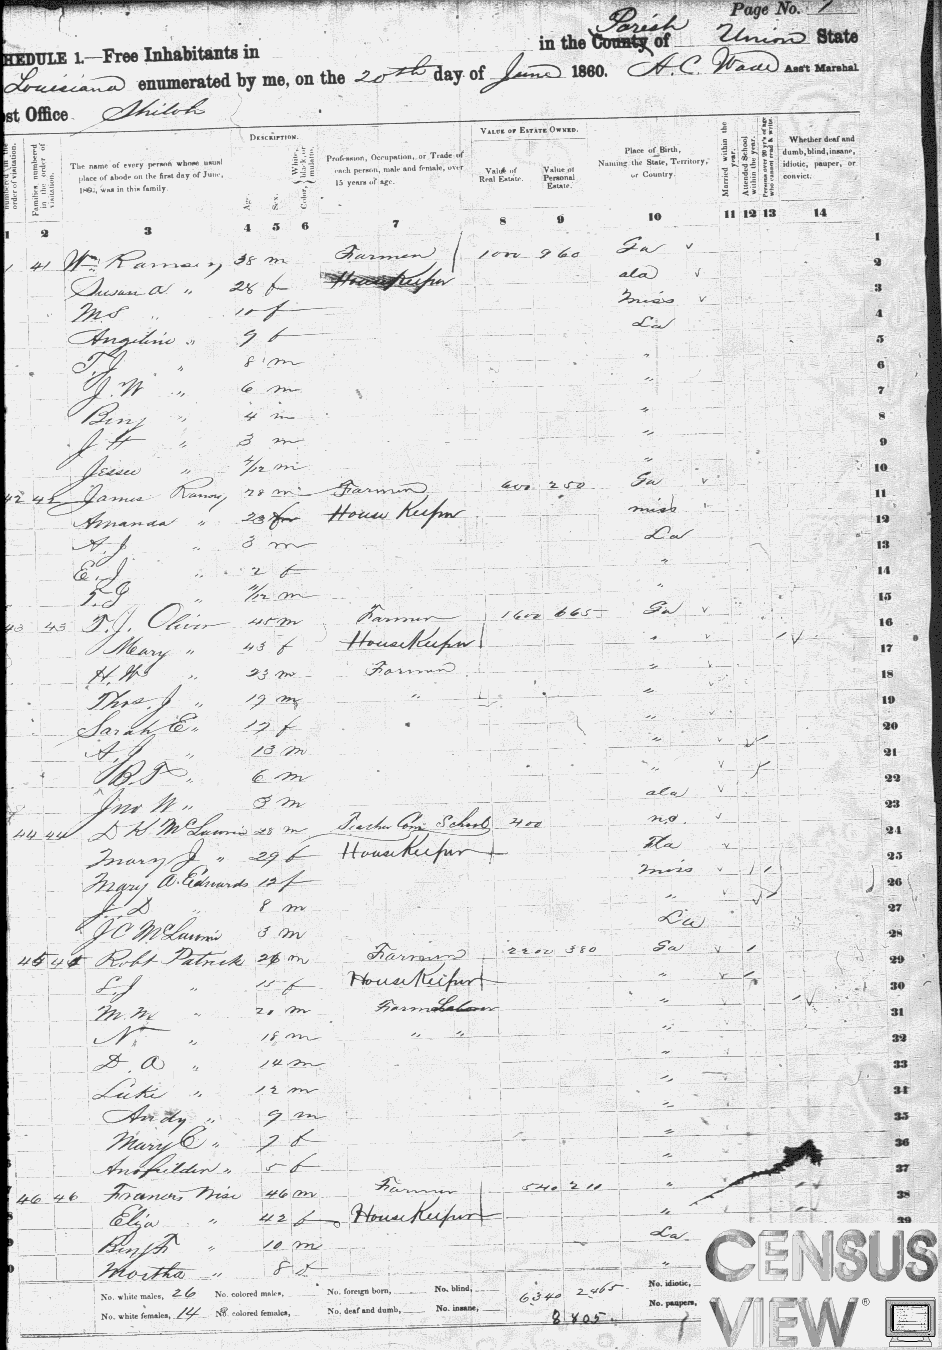 Page No. 7
SCHEDULE 1.—Free Inhabitants in
in the County Parish of Union State
Louisiana enumerated by me, on the 20th day of June 1860. H. C. Wade Ass't Marshal
Post Office Shiloh
DESCRIPTION. VALUE OF ESTATE OWNED.
The name of every person whose usual place of abode on the first day of June, 1860, was in this family.
Age. Sex. Color,
Profession, Occupation, or Trade of each person, male and female, over 15 years of age.
Value of Real Estate. Value of Personal Estate.
Place of Birth, Naming the State, Territory, or Country.
Married within the year. Attended School within the year.
Whether deaf and dumb, blind, insane, idiotic, pauper, or convict.
1 2 3 4 5 6 7 8 9 10 11 12 13 14
41 Wm Ramsey 38 m Farmer 1000 960 Ga 1
Susan A " 28 f House Keeper ala 2
M S " 10 f Miss 3
Angeline " 9 f La 4
T. J " 8 m " 5
J. W " 6 m " 6
Benj " 4 m " 7
J H " 3 m " 8
Jessee " /12 m " 9
42 42 James Ramsey 28 m Farmer 600 250 Ga 10
Amanda " 23 f House Keeper miss 11
A. J " 3 m La 12
E. J " 2 f " 13
T. J " /12 m " 14
43 43 T. J. Oliver 45 m Farmer 1600 665 Ga 15
Mary " 43 f House Keeper " 16
H. W " 23 m Farmer " 17
Thos. J " 19 m " " 18
Sarah E " 17 f " 19
A. J " 13 m " 20
B. F " 6 m " 21
Jno W " 3 m ala 22
44 44 D K McLaurin 28 m Teacher Com School 400 n.c. 23
Mary J " 29 f House Keeper Fla 24
Mary A. Edwards 12 f Miss 25
J. D " 8 m " 26
J C McLaurin 3 m La 27
45 45 Robt Patrick 26 m Farmer 2200 380 Ga 28
S J " 15 f House Keeper " 29
M. M " 20 m Farm Labour " 30
N " 18 m " " " 31
D. A " 14 m " 32
Luke " 12 m " 33
Andy " 9 m " 34
Mary C " 7 f " 35
" 5 f " 36
46 46 Francis Wise 46 m Farmer 540 210 " 37
Eliza " 42 f House Keeper " 38
Benj F " 10 m La 39
Martha " 8 f "
No. white males, 26 No. colored males, No. foreign born, No. blind, 6340 2465 No. idiotic,
No. white females, 14 No. colored females, No. deaf and dumb, No. insane, 8805. No. paupers,
CENSUS
VIEW®